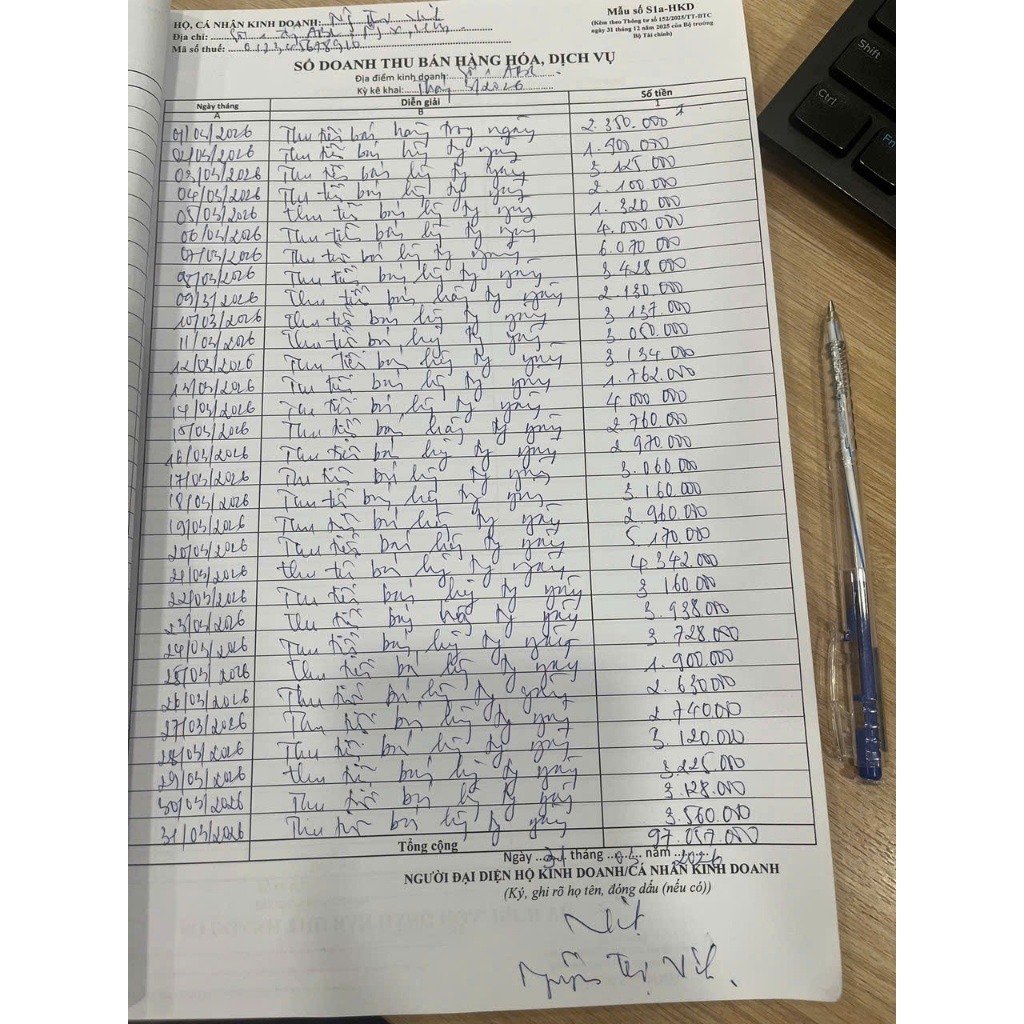 Mẫu số S1a-HKD
(Kèm theo Thông tư số 152/2025/TT-BTC
ngày 31 tháng 12 năm 2025 của Bộ trưởng
Bộ Tài chính)
HỘ, CÁ NHÂN KINH DOANH:
Địa chỉ:
Mã số thuế:
SỔ DOANH THU BÁN HÀNG HÓA, DỊCH VỤ
Địa điểm kinh doanh:
Kỳ kê khai: Tháng 3/2026
Ngày tháng Diễn giải Số tiền
A B 1
01/03/2026 Thu tiền bán hàng trong ngày 2.350.000
02/03/2026 Thu tiền bán hàng trong ngày 1.900.000
03/03/2026 Thu tiền bán hàng trong ngày 3.125.000
04/03/2026 Thu tiền bán hàng trong ngày 2.100.000
05/03/2026 Thu tiền bán hàng trong ngày 1.320.000
06/03/2026 Thu tiền bán hàng trong ngày 4.000.000
07/03/2026 Thu tiền bán hàng trong ngày 6.070.000
08/03/2026 Thu tiền bán hàng trong ngày 3.428.000
09/3/2026 Thu tiền bán hàng trong ngày 2.130.000
10/03/2026 Thu tiền bán hàng trong ngày 3.137.000
11/03/2026 Thu tiền bán hàng trong ngày 3.050.000
12/03/2026 Thu tiền bán hàng trong ngày 3.134.000
13/03/2026 Thu tiền bán hàng trong ngày 1.762.000
14/03/2026 Thu tiền bán hàng trong ngày 4.000.000
15/03/2026 Thu tiền bán hàng trong ngày 2.760.000
16/03/2026 Thu tiền bán hàng trong ngày 2.970.000
17/03/2026 Thu tiền bán hàng trong ngày 3.060.000
18/03/2026 Thu tiền bán hàng trong ngày 3.160.000
19/03/2026 Thu tiền bán hàng trong ngày 2.960.000
20/03/2026 Thu tiền bán hàng trong ngày 5.170.000
21/03/2026 Thu tiền bán hàng trong ngày 4.342.000
22/03/2026 Thu tiền bán hàng trong ngày 3.160.000
23/03/2026 Thu tiền bán hàng trong ngày 3.938.000
24/03/2026 Thu tiền bán hàng trong ngày 3.728.000
25/03/2026 Thu tiền bán hàng trong ngày 1.900.000
26/03/2026 Thu tiền bán hàng trong ngày 2.630.000
27/03/2026 Thu tiền bán hàng trong ngày 2.740.000
28/03/2026 Thu tiền bán hàng trong ngày 3.120.000
29/03/2026 Thu tiền bán hàng trong ngày 3.225.000
30/03/2026 Thu tiền bán hàng trong ngày 3.128.000
31/03/2026 Thu tiền bán hàng trong ngày 3.560.000
Tổng cộng
Ngày 31 tháng 03 năm 2026
NGƯỜI ĐẠI DIỆN HỘ KINH DOANH/CÁ NHÂN KINH DOANH
(Ký, ghi rõ họ tên, đóng dấu (nếu có))
Nguyễn Thị
Shift
Ctrl
Fn